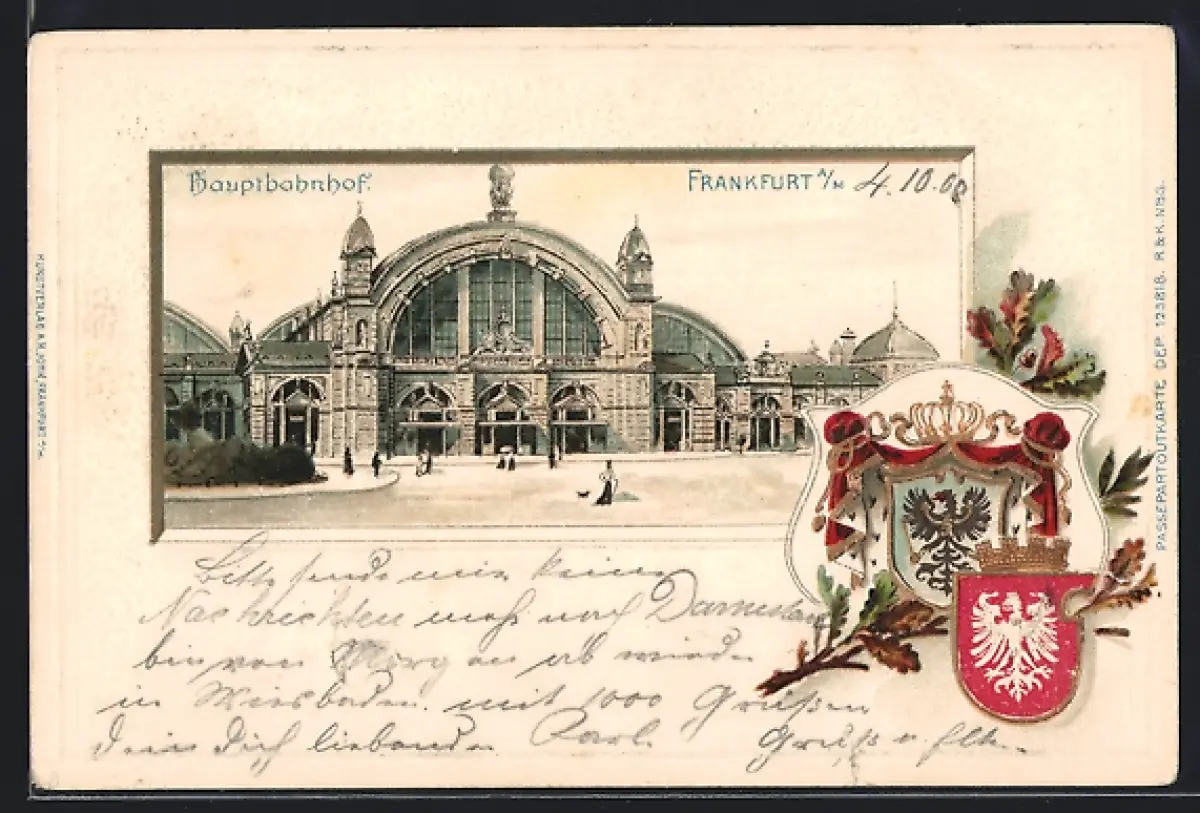 Hauptbahnhof.
FRANKFURT A/M 4.10.00
Bitte sende mir keine
Nachrichten mehr nach Darmstadt
bin von Morgen ab wieder
in Wiesbaden. mit 1000 Grüßen
Dein Dich liebender Carl.
Gruß u.
PASSEPARTOUTKARTE DEP. 123818. R & K. N
KUNSTVERLAG FRANKFURT A/M.